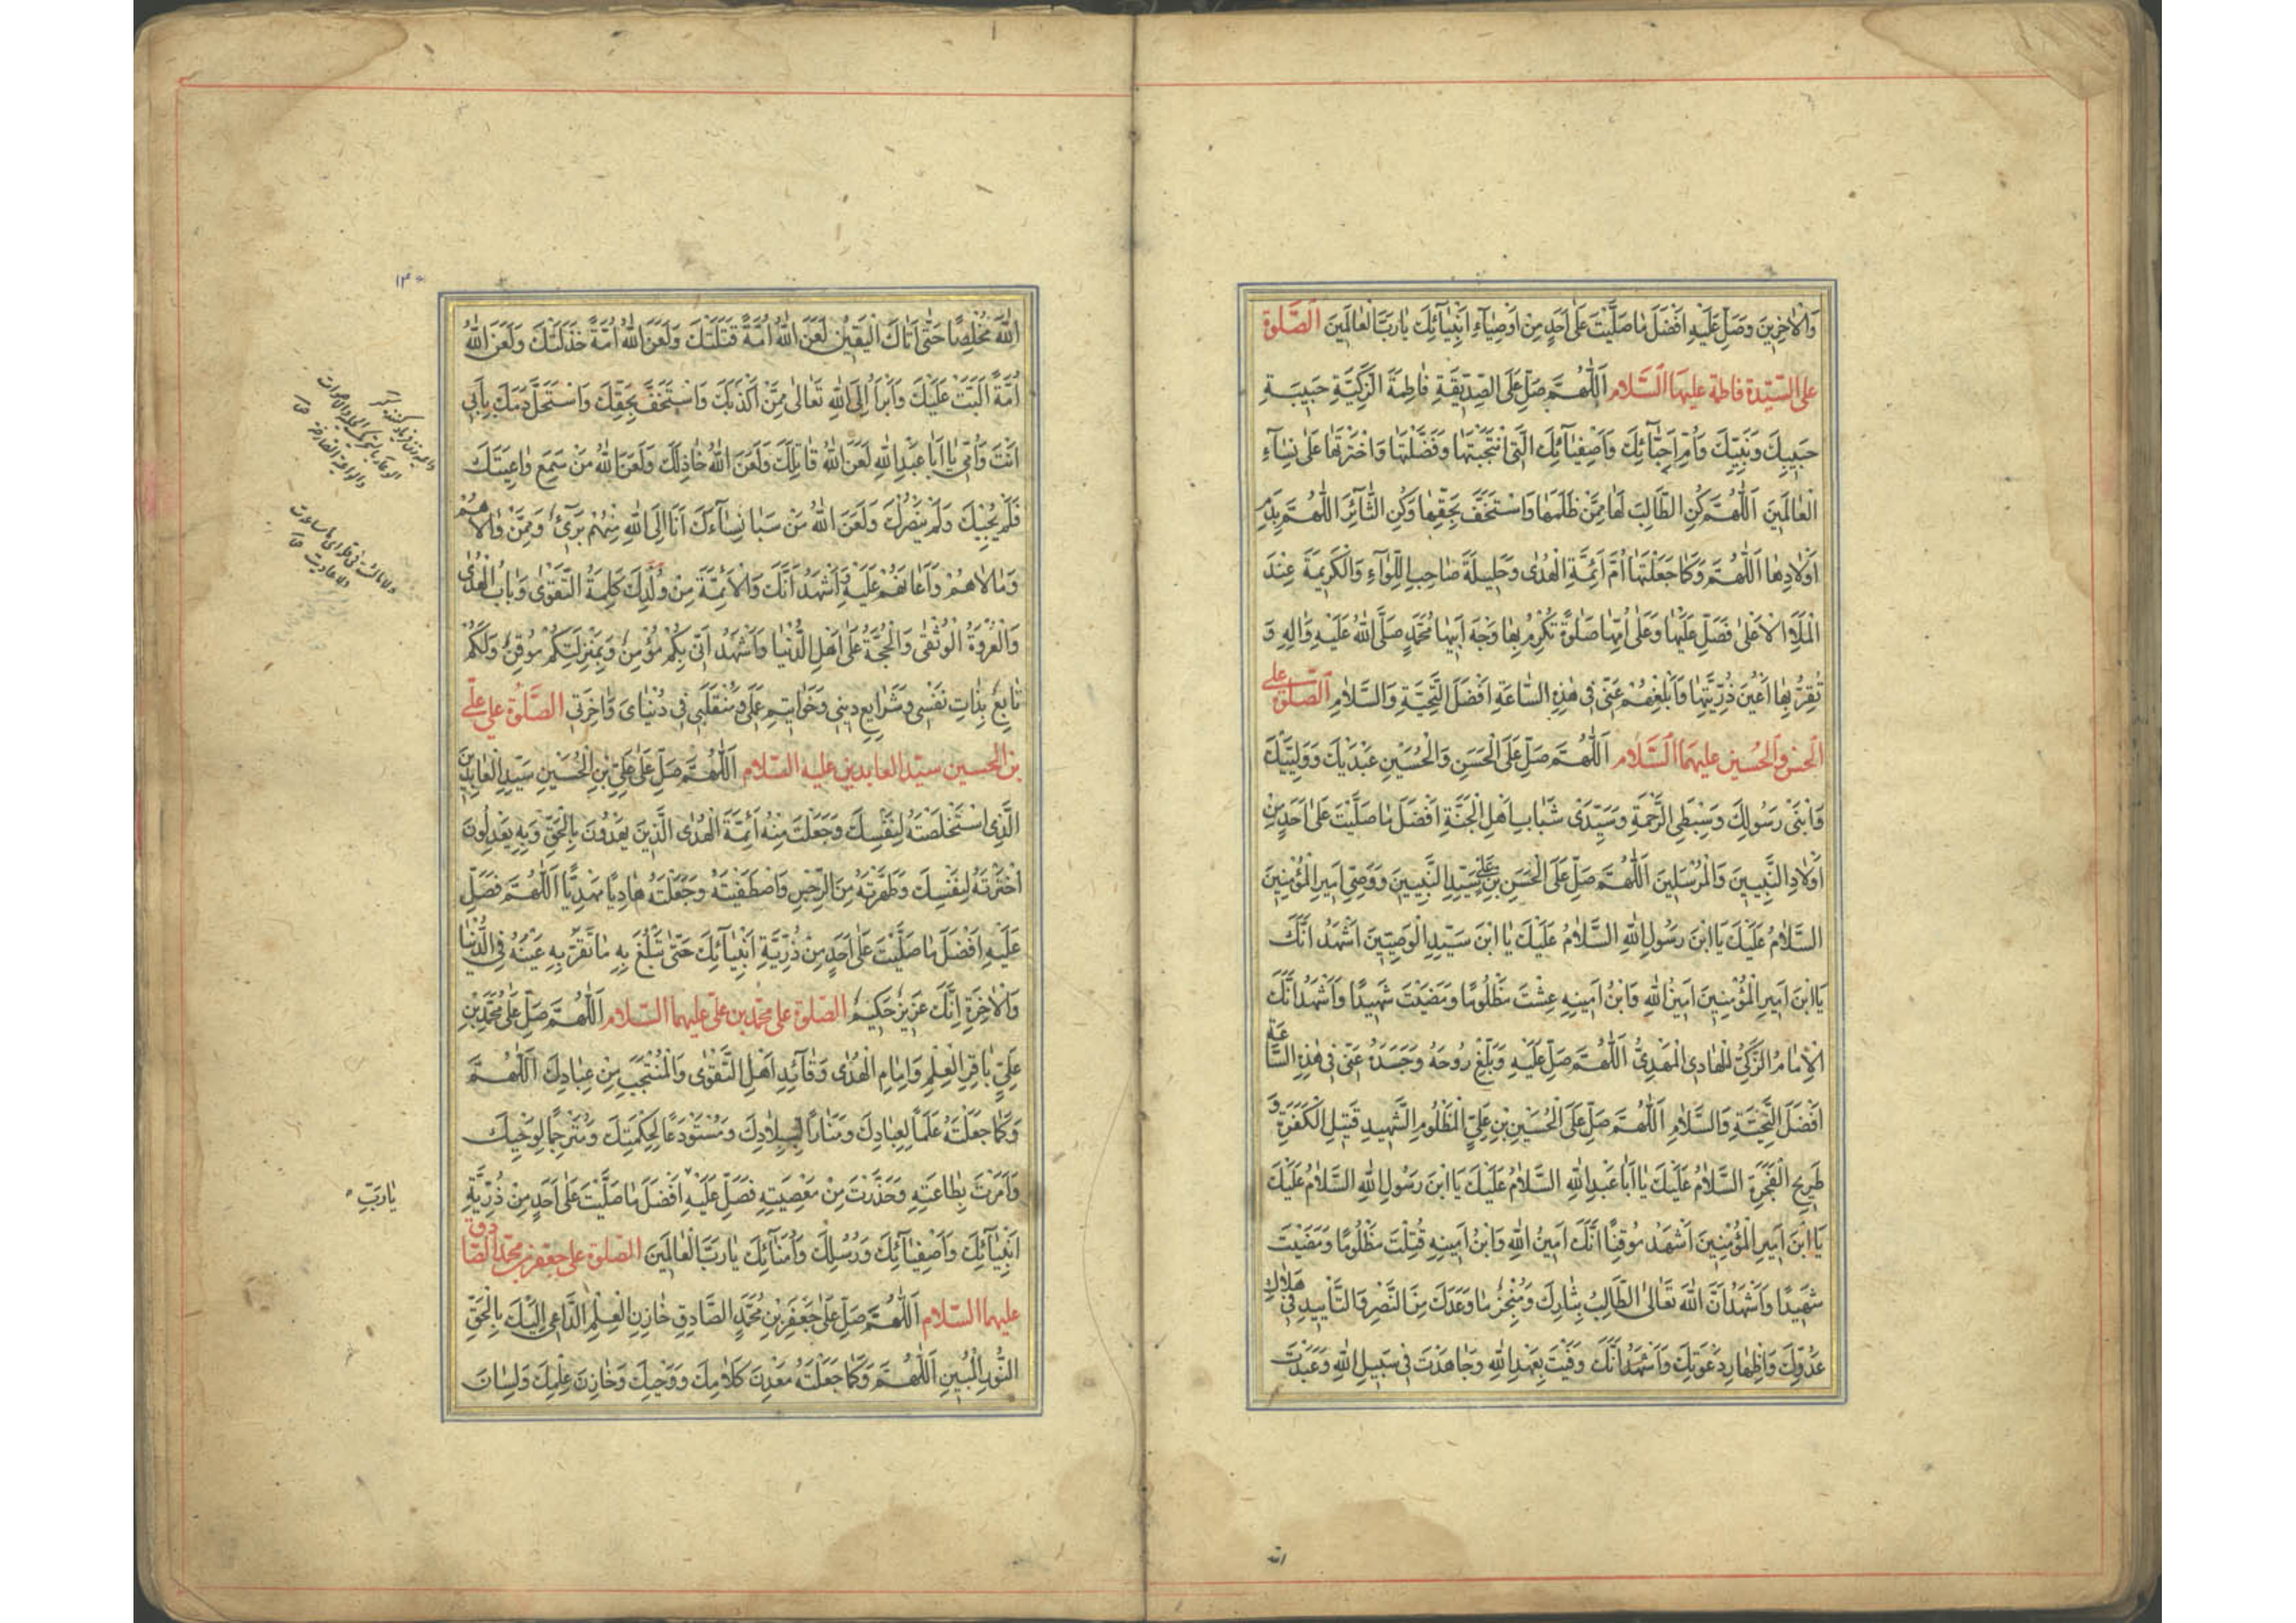 وَالْاٰخِرِينَ وَصَلِّ عَلَيْهِ اَفْضَلَ مٰا صَلَّيْتَ عَلٰى اَحَدٍ مِنْ اَوْصِيٰآءِ اَنْبِيٰآئِكَ يٰا رَبَّ الْعٰالَمِينَ الصَّلٰوة
على السّيّدة فاطمة عليها السَّلام اَللّٰهُمَّ صَلِّ عَلَى الصِّدِّيقَةِ فٰاطِمَةَ الزَّكِيَّةِ حَبِيبَةِ
حَبِيبِكَ وَنَبِيِّكَ وَاُمِّ اَحِبّٰآئِكَ وَاَصْفِيٰآئِكَ الَّتِى انْتَجَبْتَهٰا وَفَضَّلْتَهٰا وَاخْتَرْتَهٰا عَلٰى نِسٰآءِ
الْعٰالَمِينَ اَللّٰهُمَّ كُنِ الطّٰالِبَ لَهٰا مِمَّنْ ظَلَمَهٰا وَاسْتَخَفَّ بِحَقِّهٰا وَكُنِ الثّٰآئِرَ اَللّٰهُمَّ بِدَمِ
اَوْلٰادِهٰا اَللّٰهُمَّ وَكَمٰا جَعَلْتَهٰا اُمَّ اَئِمَّةِ الْهُدٰى وَحَلِيلَةَ صٰاحِبِ اللِّوٰآءِ وَالْكَرِيمَةَ عِنْدَ
الْمَلَاِ الْاَعْلٰى فَصَلِّ عَلَيْهٰا وَعَلٰى اُمِّهٰا صَلٰوةً تُكْرِمُ بِهٰا وَجْهَ اَبِيهٰا مُحَمَّدٍ صَلَّى اللّٰهُ عَلَيْهِ وَاٰلِهِ وَ
تُقِرُّ بِهٰا اَعْيُنَ ذُرِّيَّتِهٰا وَاَبْلِغْهُمْ عَنِّى فِى هٰذِهِ السّٰاعَةِ اَفْضَلَ التَّحِيَّةِ وَالسَّلٰامِ الصّلوة على
الحسن والحسين عليهما السَّلام اَللّٰهُمَّ صَلِّ عَلَى الْحَسَنِ وَالْحُسَيْنِ عَبْدَيْكَ وَوَلِيَّيْكَ
وَابْنَىْ رَسُولِكَ وَسِبْطَىِ الرَّحْمَةِ وَسَيِّدَىْ شَبٰابِ اَهْلِ الْجَنَّةِ اَفْضَلَ مٰا صَلَّيْتَ عَلٰى اَحَدٍ مِنْ
اَوْلٰادِ النَّبِيِّينَ وَالْمُرْسَلِينَ اَللّٰهُمَّ صَلِّ عَلَى الْحَسَنِ بْنِ عَلِيٍّ سَيِّدِ النَّبِيِّينَ وَوَصِيِّ اَمِيرِ الْمُؤْمِنِينَ
السَّلٰامُ عَلَيْكَ يَا ابْنَ رَسُولِ اللّٰهِ السَّلٰامُ عَلَيْكَ يَا ابْنَ سَيِّدِ الْوَصِيِّينَ اَشْهَدُ اَنَّكَ
يَا ابْنَ اَمِيرِ الْمُؤْمِنِينَ اَمِينُ اللّٰهِ وَابْنُ اَمِينِهِ عِشْتَ مَظْلُومًا وَمَضَيْتَ شَهِيدًا وَاَشْهَدُ اَنَّكَ
الْاِمٰامُ الزَّكِيُّ الْهٰادِى الْمَهْدِيُّ اَللّٰهُمَّ صَلِّ عَلَيْهِ وَبَلِّغْ رُوحَهُ وَجَسَدَهُ عَنِّى فِى هٰذِهِ السّٰاعَةِ
اَفْضَلَ التَّحِيَّةِ وَالسَّلٰامِ اَللّٰهُمَّ صَلِّ عَلَى الْحُسَيْنِ بْنِ عَلِيٍّ الْمَظْلُومِ الشَّهِيدِ قَتِيلِ الْكَفَرَةِ وَ
طَرِيحِ الْفَجَرَةِ السَّلٰامُ عَلَيْكَ يٰا اَبٰا عَبْدِ اللّٰهِ السَّلٰامُ عَلَيْكَ يَا ابْنَ رَسُولِ اللّٰهِ السَّلٰامُ عَلَيْكَ
يَا ابْنَ اَمِيرِ الْمُؤْمِنِينَ اَشْهَدُ مُوقِنًا اَنَّكَ اَمِينُ اللّٰهِ وَابْنُ اَمِينِهِ قُتِلْتَ مَظْلُومًا وَمَضَيْتَ
شَهِيدًا وَاَشْهَدُ اَنَّ اللّٰهَ تَعٰالَى الطّٰالِبُ بِثٰارِكَ وَمُنْجِزٌ مٰا وَعَدَكَ مِنَ النَّصْرِ وَالتَّاْيِيدِ فِى هَلٰاكِ
عَدُوِّكَ وَاِظْهٰارِ دَعْوَتِكَ وَاَشْهَدُ اَنَّكَ وَفَيْتَ بِعَهْدِ اللّٰهِ وَجٰاهَدْتَ فِى سَبِيلِ اللّٰهِ وَعَبَدْتَ
الله
اللّٰهَ مُخْلِصًا حَتّٰى اَتٰاكَ الْيَقِينُ لَعَنَ اللّٰهُ اُمَّةً قَتَلَتْكَ وَلَعَنَ اللّٰهُ اُمَّةً خَذَلَتْكَ وَلَعَنَ اللّٰهُ
اُمَّةً اَلَّبَتْ عَلَيْكَ وَاَبْرَاُ اِلَى اللّٰهِ تَعٰالٰى مِمَّنْ اَكْذَبَكَ وَاسْتَخَفَّ بِحَقِّكَ وَاسْتَحَلَّ دَمَكَ بِاَبِى
اَنْتَ وَاُمِّى يٰا اَبٰا عَبْدِ اللّٰهِ لَعَنَ اللّٰهُ قٰاتِلَكَ وَلَعَنَ اللّٰهُ خٰاذِلَكَ وَلَعَنَ اللّٰهُ مَنْ سَمِعَ وٰاعِيَتَكَ
فَلَمْ يُجِبْكَ وَلَمْ يَنْصُرْكَ وَلَعَنَ اللّٰهُ مَنْ سَبٰا نِسٰآءَكَ اَنَا اِلَى اللّٰهِ مِنْهُمْ بَرِىٓءٌ وَمِمَّنْ وٰالٰاهُمْ
وَمٰالَاهُمْ وَاَعٰانَهُمْ عَلَيْهِ وَاَشْهَدُ اَنَّكَ وَالْاَئِمَّةَ مِنْ وُلْدِكَ كَلِمَةُ التَّقْوٰى وَبٰابُ الْهُدٰى
وَالْعُرْوَةُ الْوُثْقٰى وَالْحُجَّةُ عَلٰى اَهْلِ الدُّنْيٰا وَاَشْهَدُ اَنِّى بِكُمْ مُؤْمِنٌ وَبِمَنْزِلَتِكُمْ مُوقِنٌ وَلَكُمْ
تٰابِعٌ بِذٰاتِ نَفْسِى وَشَرٰايِعِ دِينِى وَخَوٰاتِيمِ عَمَلِى وَمُنْقَلَبِى فِى دُنْيٰاىَ وَاٰخِرَتِى الصَّلٰوة على علىّ
بن الحسين سيّد العابدين عليه السّلام اَللّٰهُمَّ صَلِّ عَلٰى عَلِيِّ بْنِ الْحُسَيْنِ سَيِّدِ الْعٰابِدِينَ
الَّذِى اسْتَخْلَصْتَهُ لِنَفْسِكَ وَجَعَلْتَ مِنْهُ اَئِمَّةَ الْهُدٰى الَّذِينَ يَهْدُونَ بِالْحَقِّ وَبِهِ يَعْدِلُونَ
اخْتَرْتَهُ لِنَفْسِكَ وَطَهَّرْتَهُ مِنَ الرِّجْسِ وَاصْطَفَيْتَهُ وَجَعَلْتَهُ هٰادِيًا مَهْدِيًّا اَللّٰهُمَّ فَصَلِّ
عَلَيْهِ اَفْضَلَ مٰا صَلَّيْتَ عَلٰى اَحَدٍ مِنْ ذُرِّيَّةِ اَنْبِيٰآئِكَ حَتّٰى تَبْلُغَ بِهِ مٰا تَقَرُّ بِهِ عَيْنُهُ فِى الدُّنْيٰا
وَالْاٰخِرَةِ اِنَّكَ عَزِيزٌ حَكِيمٌ الصّلوة على محمّد بن علىّ عليهما السّلام اَللّٰهُمَّ صَلِّ عَلٰى مُحَمَّدِ بْنِ
عَلِيٍّ بٰاقِرِ الْعِلْمِ وَاِمٰامِ الْهُدٰى وَقٰآئِدِ اَهْلِ التَّقْوٰى وَالْمُنْتَجَبِ مِنْ عِبٰادِكَ اَللّٰهُمَّ
وَكَمٰا جَعَلْتَهُ عَلَمًا لِعِبٰادِكَ وَمَنٰارًا لِبِلٰادِكَ وَمُسْتَوْدَعًا لِحِكْمَتِكَ وَمُتَرْجِمًا لِوَحْيِكَ
وَاَمَرْتَ بِطٰاعَتِهِ وَحَذَّرْتَ مِنْ مَعْصِيَتِهِ فَصَلِّ عَلَيْهِ اَفْضَلَ مٰا صَلَّيْتَ عَلٰى اَحَدٍ مِنْ ذُرِّيَّةِ
يٰا رَبِّ
اَنْبِيٰآئِكَ وَاَصْفِيٰآئِكَ وَرُسُلِكَ وَاُمَنٰآئِكَ يٰا رَبَّ الْعٰالَمِينَ الصّلوة على جعفر بن محمّد الصّادق
عليهما السّلام اَللّٰهُمَّ صَلِّ عَلٰى جَعْفَرِ بْنِ مُحَمَّدٍ الصّٰادِقِ خٰازِنِ الْعِلْمِ الدّٰاعِى اِلَيْكَ بِالْحَقِّ
النُّورِ الْمُبِينِ اَللّٰهُمَّ وَكَمٰا جَعَلْتَهُ مَعْدِنَ كَلٰامِكَ وَوَحْيِكَ وَخٰازِنَ عِلْمِكَ وَلِسٰانَ